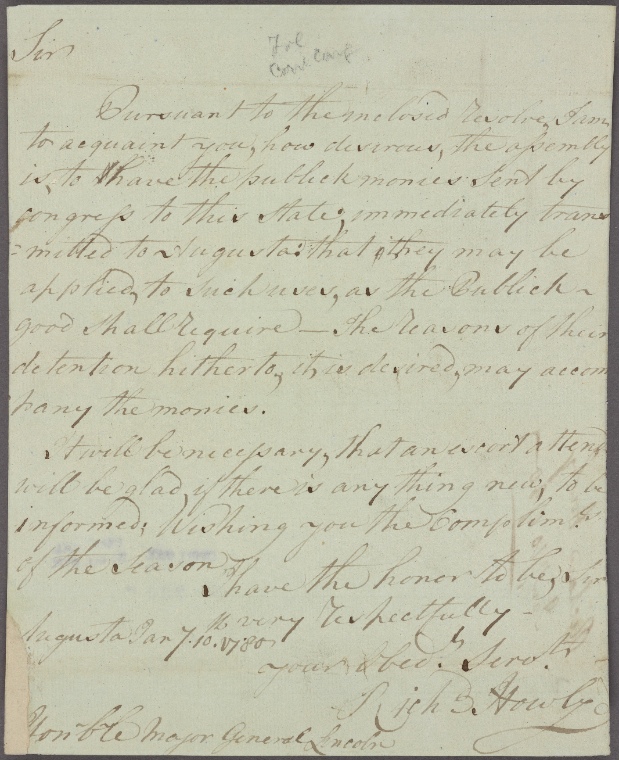 Sir
Pursuant to the inclosed resolve, I am
to acquaint you, how desirous, the assembly
is, to have the publick monies sent by
congress to this state, immediately trans
=mitted to Augusta: that they may be
applied, to such uses, as the Publick
good shall require — The reasons of their
detention hitherto, it is desired, may accom
pany the monies.
It will be necessary, that an escort attend
will be glad, if there is any thing new, to be
informed; Wishing you the Complimts.
of the season
I have the honor to be, Sir
very respectfully -
Augusta Jany. 10.th 1780
your Obedt. Servt.
Richd Howly
Honble Major General Lincoln